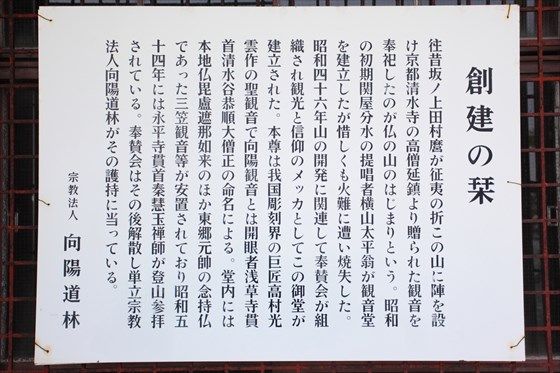 創建の栞
往昔坂ノ上田村麿が征夷の折この山に陣を設
け京都清水寺の高僧延鎮より贈られた観音を
奉祀したのが仏の山のはじまりという。昭和
の初期関屋分水の提唱者横山太平翁が観音堂
を建立したが惜しくも火難に遭い焼失した。
昭和四十六年山の開発に関連して奉賛会が組
織され観光と信仰のメッカとしてこの御堂が
建立された。本尊は我国彫刻界の巨匠高村光
雲作の聖観音で向陽観音とは開眼者浅草寺貫
首清水谷恭順大僧正の命名による。堂内には
本地仏毘盧遮那如来のほか東郷元帥の念持仏
であった三笠観音等が安置されており昭和五
十四年には永平寺貫首秦慧玉禅師が登山参拝
されている。奉賛会はその後解散し単立宗教
法人向陽道林がその護持に当っている。
宗教法人 向陽道林